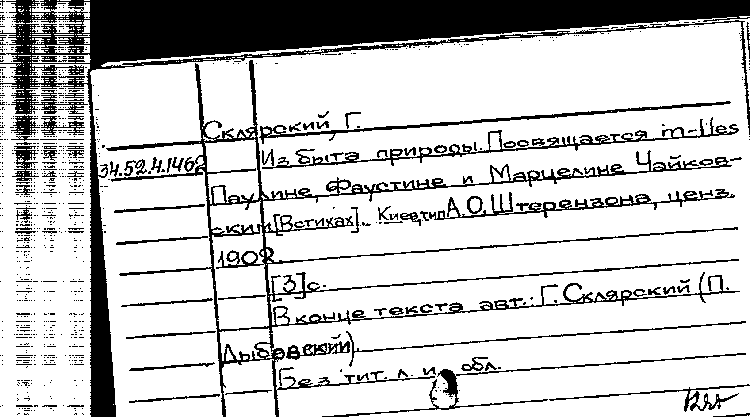 Склярский, Г.
34.52.4.1462
Из быта природы. Посвящается m-lles
Паулине, Фаустине и Марцелине Чайков-
ским [В стихах]. Киев, тип. А.О. Штерензона, ценз.
1902.
[3] с.
В конце текста авт.: Г. Склярский (П.
Дыбовский)
Без тит. л. и обл.